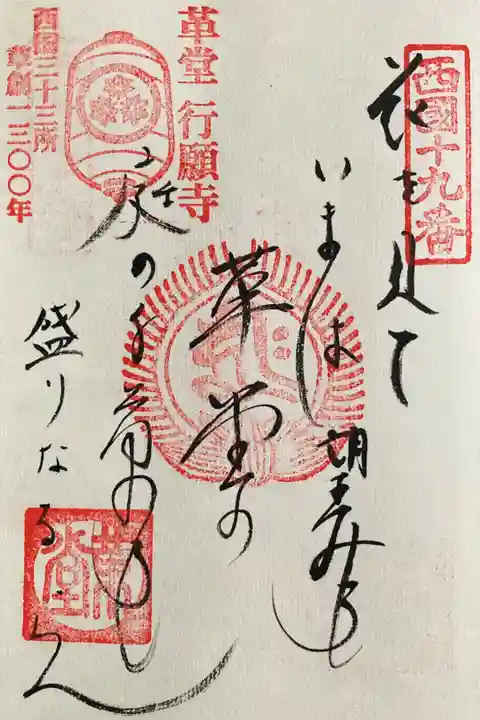 西國十九番
花を見て
いまは望みも
革堂の
庭の千草も
盛りなるらん
革堂 行願寺
西国三十三所
草創一三〇〇年